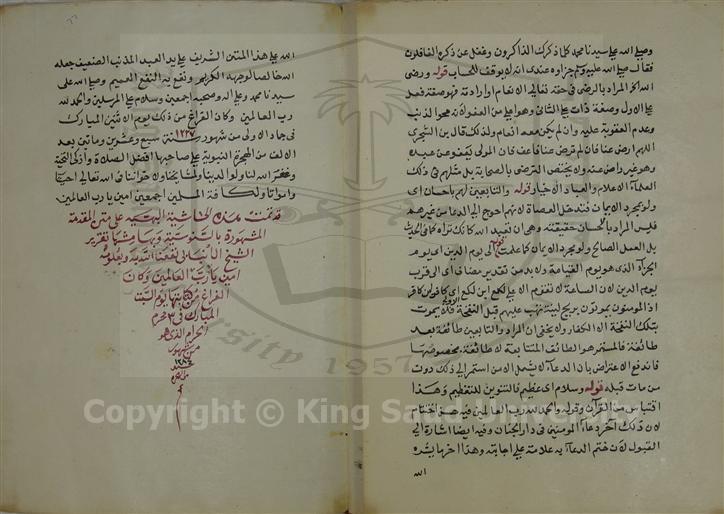 وصلي الله علي سيدنا محمد كلما ذكرك الذاكرون وغفل عن ذكره الغافلون
فقال صلي الله عليه وسلم جزاوه عندى انه لا يوقف للحساب قوله ورضى
الله الخ المراد بالرضى في حقه تعالي الانعام او ارادته فهو صفة فعل
علي الاول وصفة ذات علي الثاني وهو اعلي من العفو لانه محو الذنب
وعدم العقوبة عليه وان لم يكن معه انعام ولذلك قال بن الشجرى
اللهم ارض عنا فان لم ترض عنا فاعف فان المولى يعفو عن عبده
وهو غير راض عنه ولا يختص الترضى بالصحابة بل مثلهم في ذلك
العلماء الاعلام والعباد الاخيار قوله والتابعين لهم باحسان اى
ولو بمجرد الايمان فتدخل العصاة لانهم احوج الي الدعا من غيرهم
فليس المراد بالاحسان حقيقته وهو ان تعبد الله كانك تراه كما في الحديث
بل العمل الصالح ولو بمجرد الايمان كما علمت قوله الي يوم الدين اى يوم
الجزآء الذى هو يوم القيامة ولا بد من تقدير مضاف اى الي قرب
يوم الدين لان الساعة لا تقوم الا علي لكع ابن لكع اى كافر بن كافر
اذ المومنون يموتون بريح لينة تهب عليهم قبل النفخة الاولى فلا يموت
بتلك النفخة الا الكفار ولا يخفى ان المراد والتابعين طائفة بعد
طائفة فالمستمر هو الطائف المتتابعة لا طائفة مخصوصها
فاندفع الاعتراض بان الدعاء لا يشمل الا من استمر الي ذلك دون
من مات قبله قوله وسلام اى عظيم فالتنوين للتعظيم وهذا
اقتباس من القرآن وقوله والحمد لله رب العالمين فيه حسن اختتام
لان ذلك آخر دعاء المومنين في دار الجنان وفيه ايضا اشارة الي
القبول لان ختم الدعاء به علامة علي اجابته وهذا اخر ما يسره
الله
الله علي هذا المتن الشريف علي يد العبد المذنب الضعيف جعله
الله خالصا لوجهه الكريم ونفع به النفع العميم وصلي الله على
سيدنا محمد وعلي اله وصحبه اجمعين وسلام علي المرسلين والحمد لله
رب العالمين وكان الفراغ من ذلك يوم الاثنين المبارك
في جماد الاولى من شهور سنة ١٢٢٧ سبع وعشرين وماتين بعد
الالف من الهجرة النبوية علي صاحبها افضل الصلاة وأذكى التحية
وغفر الله لنا ولوالدينا ولمشايخنا ولاخواننا في الله تعالى احياءً
وامواتا ولكافة المسلمين اجمعين امين يارب العالمين.
قد تمت هذه الحاشية البهية على متن المقدمة
المشهورة بالسنوسية وبهامشها تقرير
الشيخ الانبابى نفعنا الله به وبعلومه
امين يارب العالمين وكان
الفراغ من كتابتها يوم السبت
المبارك في ٣ محرم
الحرام الذى هو
من شهور
سنة
١٢٨٤
Copyright © King Sa
1957